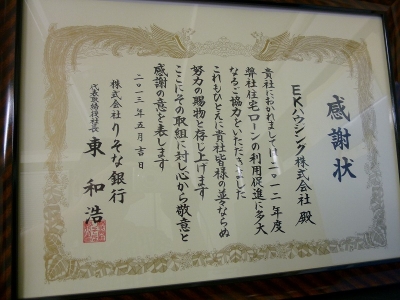 感謝状
EKハウシング株式会社 殿
貴社におかれましては二〇一二年度
弊社住宅ローンの利用促進に多大
なるご協力をいただきました
これもひとえに貴社皆様の並々ならぬ
努力の賜物と存じ上げます
ここにその取組に対し心から敬意と
感謝の意を表します
二〇一三年五月吉日
株式会社りそな銀行
代表取締役社長 東 和浩